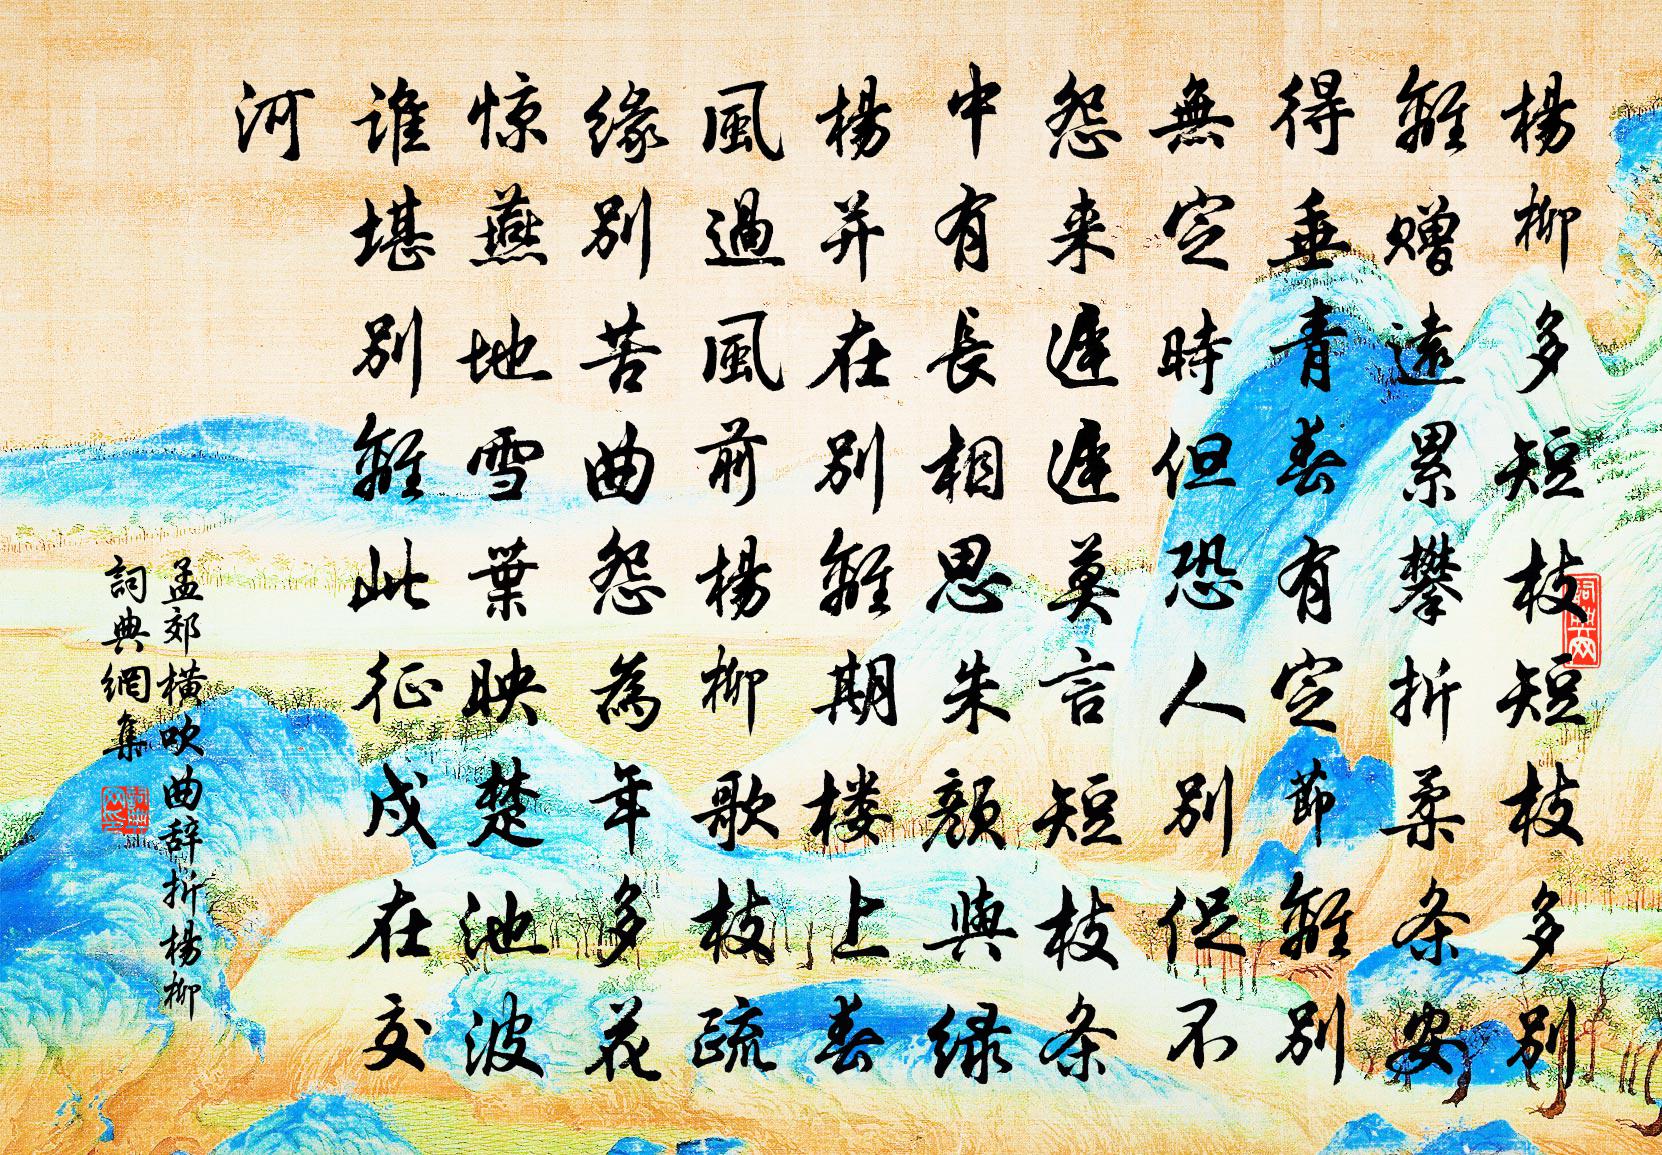 楊柳多短枝短枝多別
離贈遠累攀折柔条安
得垂青春有定節離別
無定時但恐人別促不
怨来遲遲莫言短枝条
中有長相思朱顏與緑
楊并在別離期楼上春
風過風前楊柳歌枝疏
缘別苦曲怨為年多花
惊燕地雪葉映楚池波
谁堪別離此征戍在交
河
孟郊横吹曲辞折楊柳
詞典網集